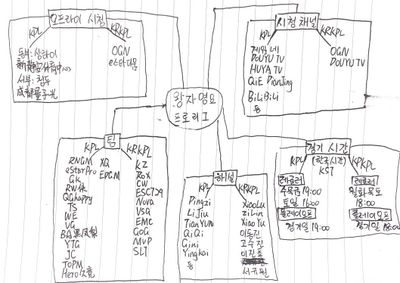 오프라인 시청
KPL
KRKPL
동부: 상하이
서부: 청두
OGN
e스타디움
시청 채널
KPL
KRKPL
DOUYU TV
HUYA TV
QiE DianJing
BiLiBiLi
등
OGN
DOUYU TV
왕자영요
프로리그
팀
KPL
KRKPL
RNGM
XQ
eStarPro
EDGM
GK
RW侠
QGhappy
TS
WE
VG
BA黑凤梨
YTG
JC
TOPM
Hero久竞
KZ
ROX
CW
ESC729
Nova
VSG
EMC
GOG
MVP
SLT
해설
KPL
KRKPL
Pingzi
LiJiu
TianYun
QiQi
Gini
Yingkai
등
XiaoLu
ZiLin
XiaoTu
이동진
고수진
경기 시간
(한국시간)
KPL
KST
KRKPL
정규리그
수목금 19:00
토일 16:00
플레이오프
경기일 19:00
월화목토
18:00
플레이오프
경기일 18:00